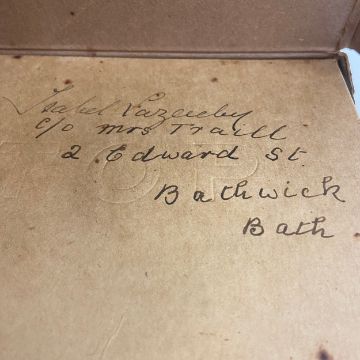 Isabel Lazenby
c/o Mrs Traill
2 Edward St.
Bathwick
Bath